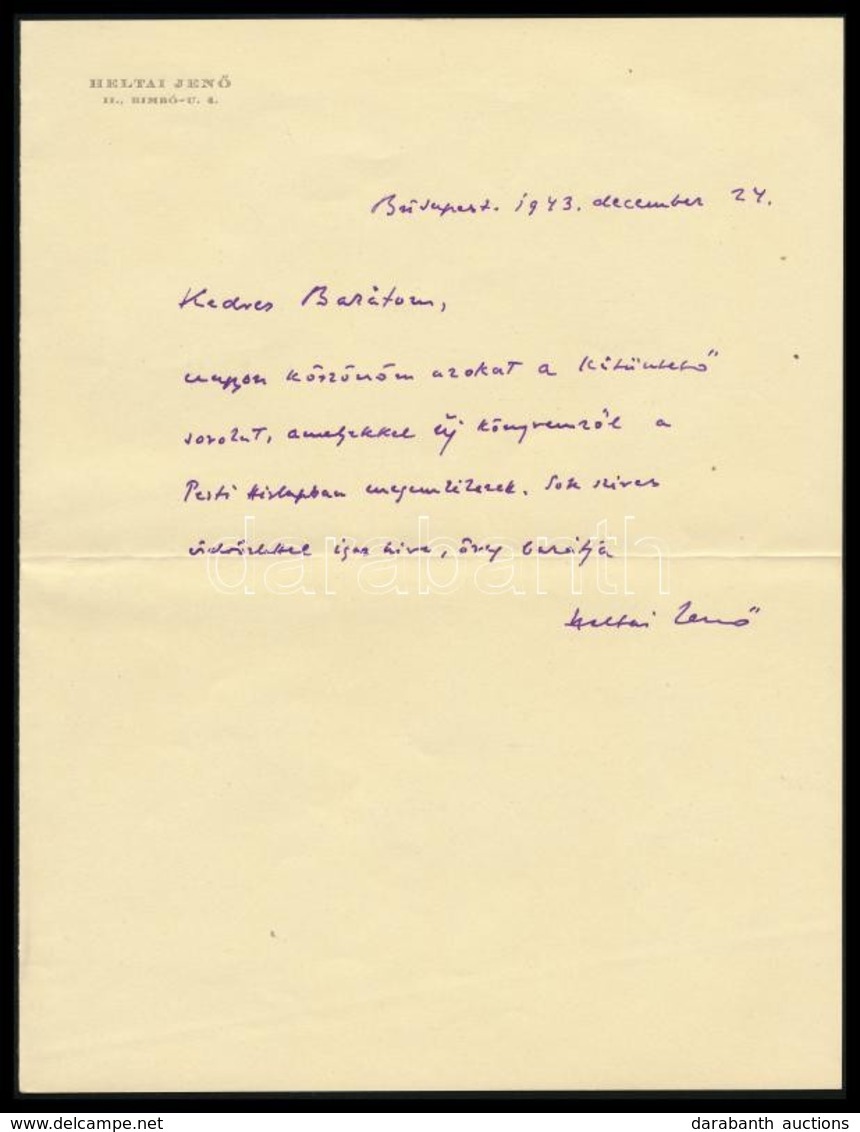 HELTAI JENŐ
II., BIMBÓ-U. 4.
Budapest. 1943. december 24.
Kedves Barátom,
nagyon köszönöm azokat a kitüntető
sorokat, amelyekkel új könyvemről a
Pesti Hirlapban megemlékezett. Sok szives
üdvözlettel igaz hive, öreg barátja
Heltai Jenő
darabanth
www.delcampe.net
darabanth auctions